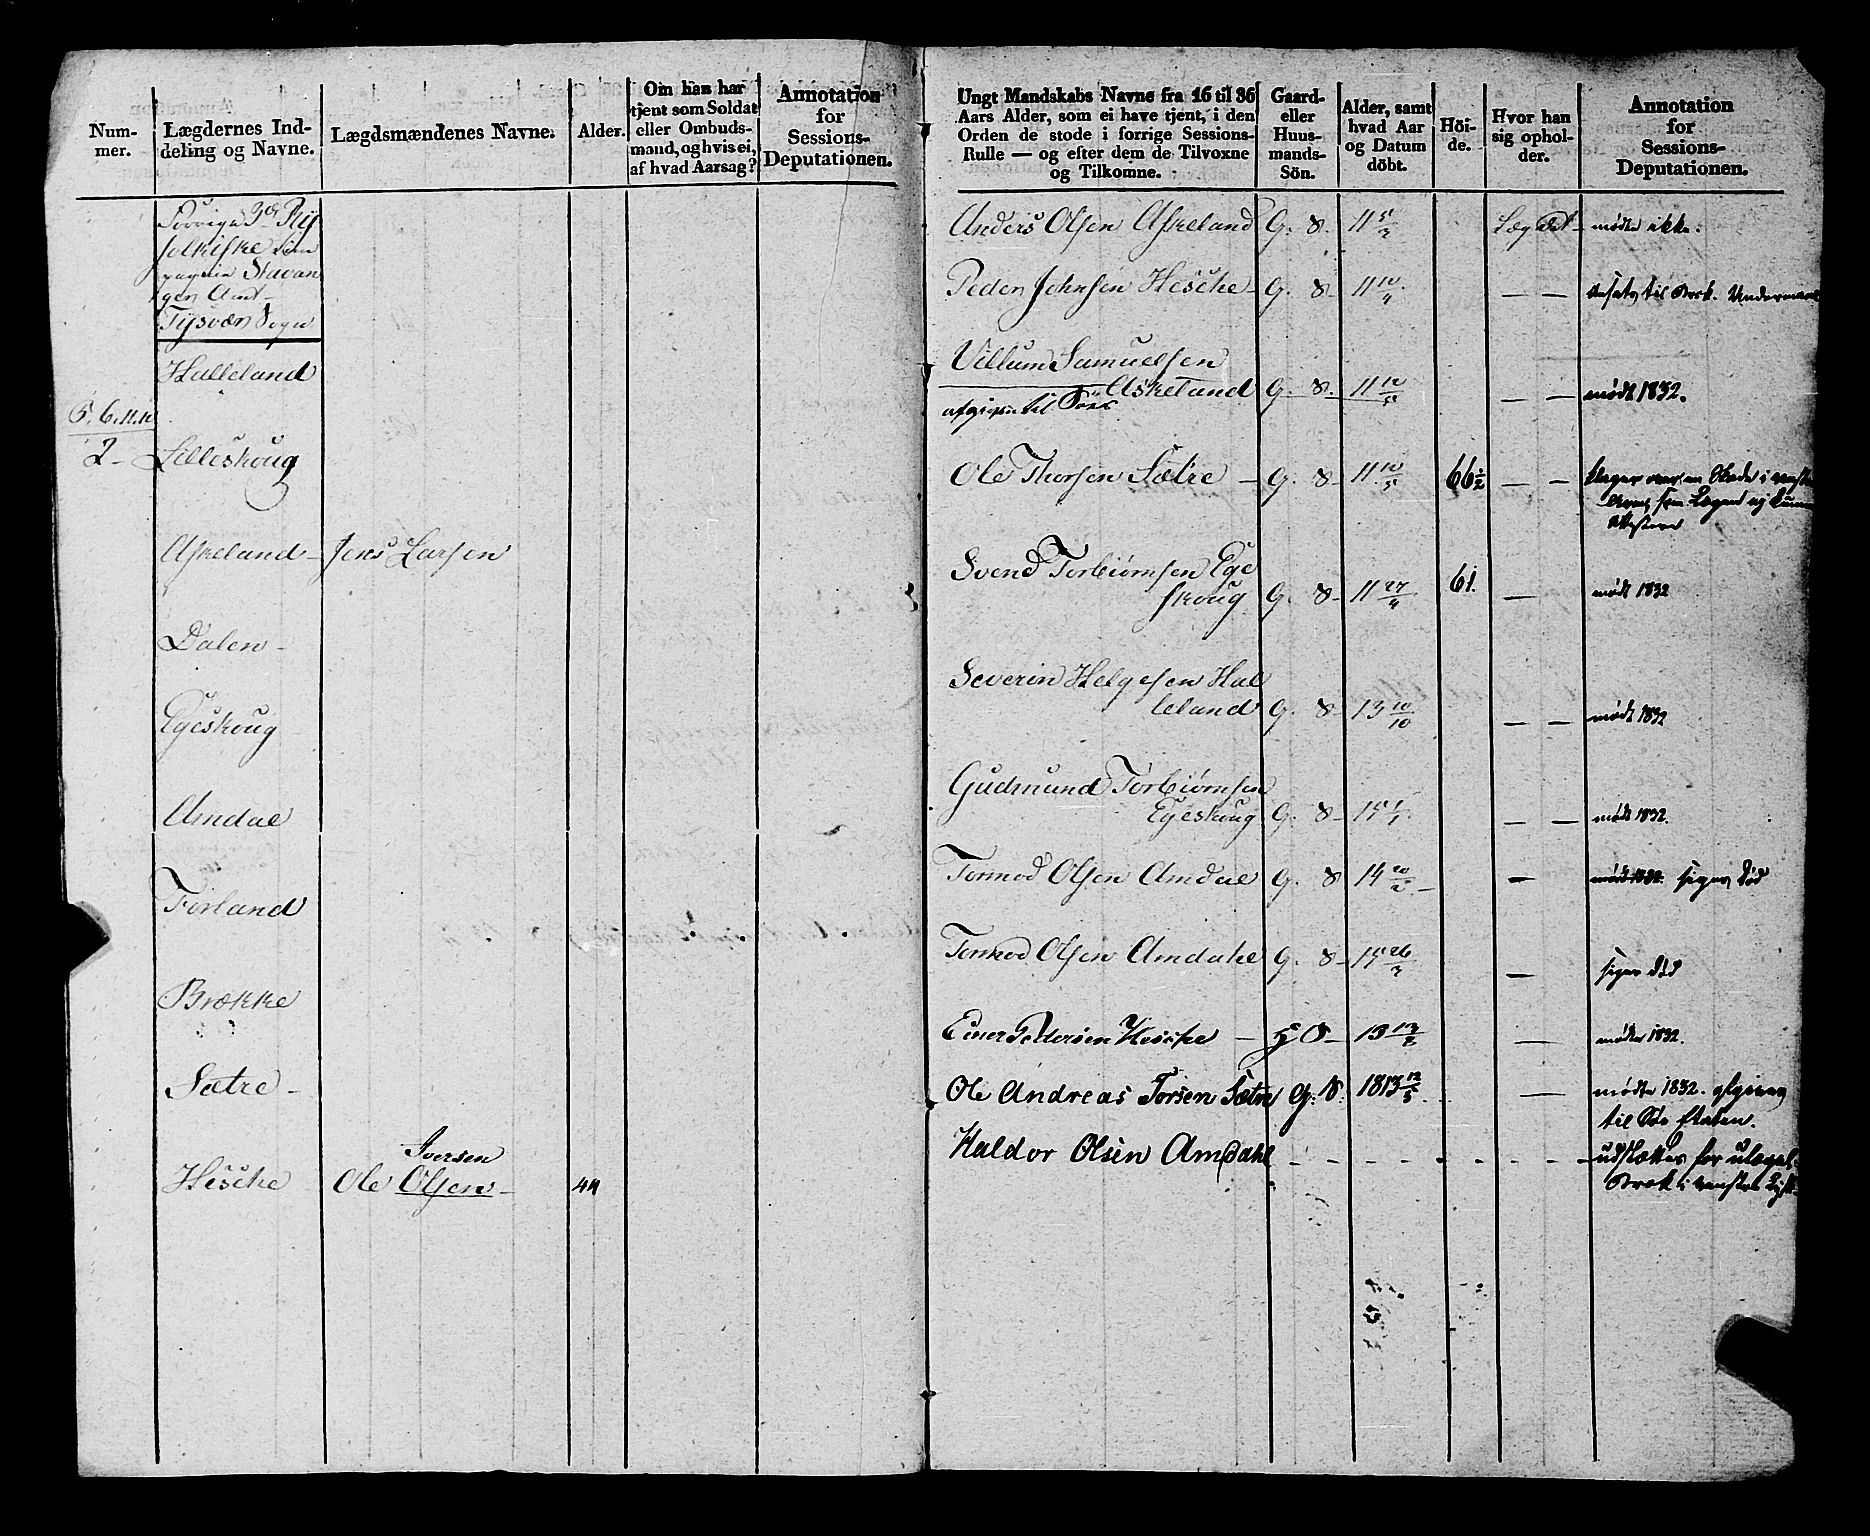 Num-
mer.
Lægdernes Ind-
deling og Navne.
Lægdsmændenes Navne.
Alder.
Om han har
tjent som Soldat
eller Ombuds-
mand, og hvis ei,
af hvad Aarsag?
Annotation
for
Sessions-
Deputationen.
gen Amt
Tysvær Sogn
Halleland
5. 6. 11. 12
2 - Lilleskoug
Askeland - Jens Larsen
Dalen -
Egeskoug
Amdal
Førland
Brække
Sætre -
Iversen
Hesche Ole Olsen - 44
Ungt Mandskabs Navne fra 16 til 36
Aars Alder, som ei have tjent, i den
Orden de stode i forrige Sessions-
Rulle — og efter dem de Tilvoxne
og Tilkomne.
Gaard-
eller
Huus-
mands-
Sön.
Alder, samt
hvad Aar
og Datum
döbt.
Höi-
de.
Hvor han
sig ophol-
der.
Annotation
for
Sessions-
Deputationen.
Anders Olsen Askeland G. S. 11 5/2 Lægdet - mødte ikke.
Peder Johnsen Hesche - G. S - 11 10/4 — — til Undermaal
Villum Samuelsen
Askeland G. S. 11 12/5 — — mødt 1832.
Ole Thorsen Sætre - G. S - 11 10/5 66 1/2 — —
Svend Torbiørnsen Ege
skoug G. S - 11 27/4 61. — mødt 1832
Severin Helgesen Hal
leland G. S - 13 10/10 — — mødt 1832
Gudmund Torbiørnsen
Egeskoug G. S - 15 1/1 — — mødt 1832.
Tormod Olsen Amdal G. S 14 20/2 — — mødt 1832. siges død
Tormod Olsen Amdahl G. S - 15 26/3 — siges død
Einer Pedersen Hesche — 13 13/2 — mødte 1832.
Ole Andreas Torsen Sætre G. S. 1813 12/5 — mødte 1832. afgiven
til Søe Etaten.
Haldor Olsen Amdahl - - - - - - - udsættes for